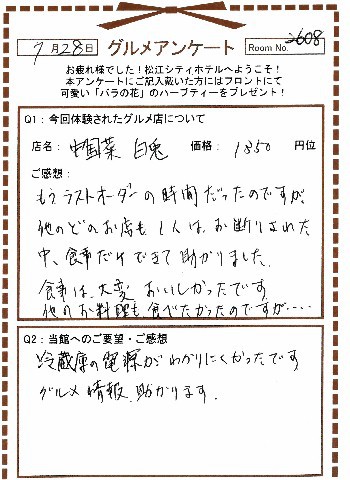 7月28日 グルメアンケート Room No. 2608
お疲れ様でした！松江シティホテルへようこそ！
本アンケートにご記入戴いた方にはフロントにて
可愛い「バラの花」のハーブティーをプレゼント！
Q1：今回体験されたグルメ店について
店名： 中国菜 白兎 価格： 1350 円位
ご感想：
もうラストオーダーの時間だったのですが、
他のどのお店も1人は、お断りされた
中、食事だけできて助かりました。
食事は、大変おいしかったです
他のお料理も食べたかったのですが……
Q2：当館へのご要望・ご感想
冷蔵庫の電源がわかりにくかったです
グルメ情報、助かります。